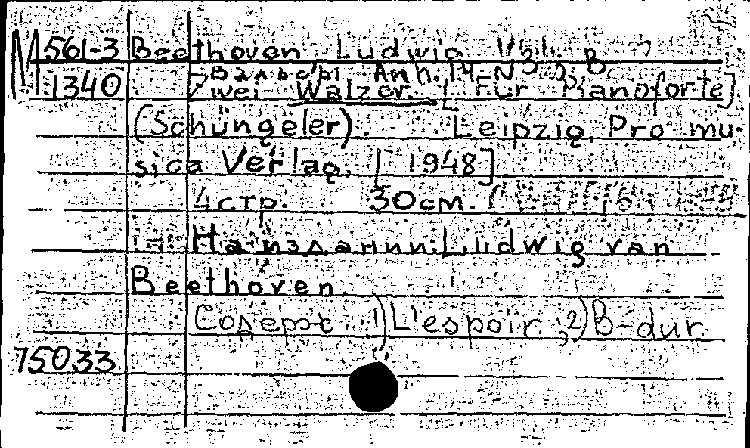 М 561-3 Beethoven Ludwig
1340 Вальсы. Anh. 14 N 3
Zwei Walzer. [Für Pianoforte]
(Schüngeler). Leipzig, Pro mu-
sica Verlag, [1948]
4 стр. 30 см.
Ludwig van
Beethoven.
Содерж: 1) L'espoir; 2) B-dur
75033